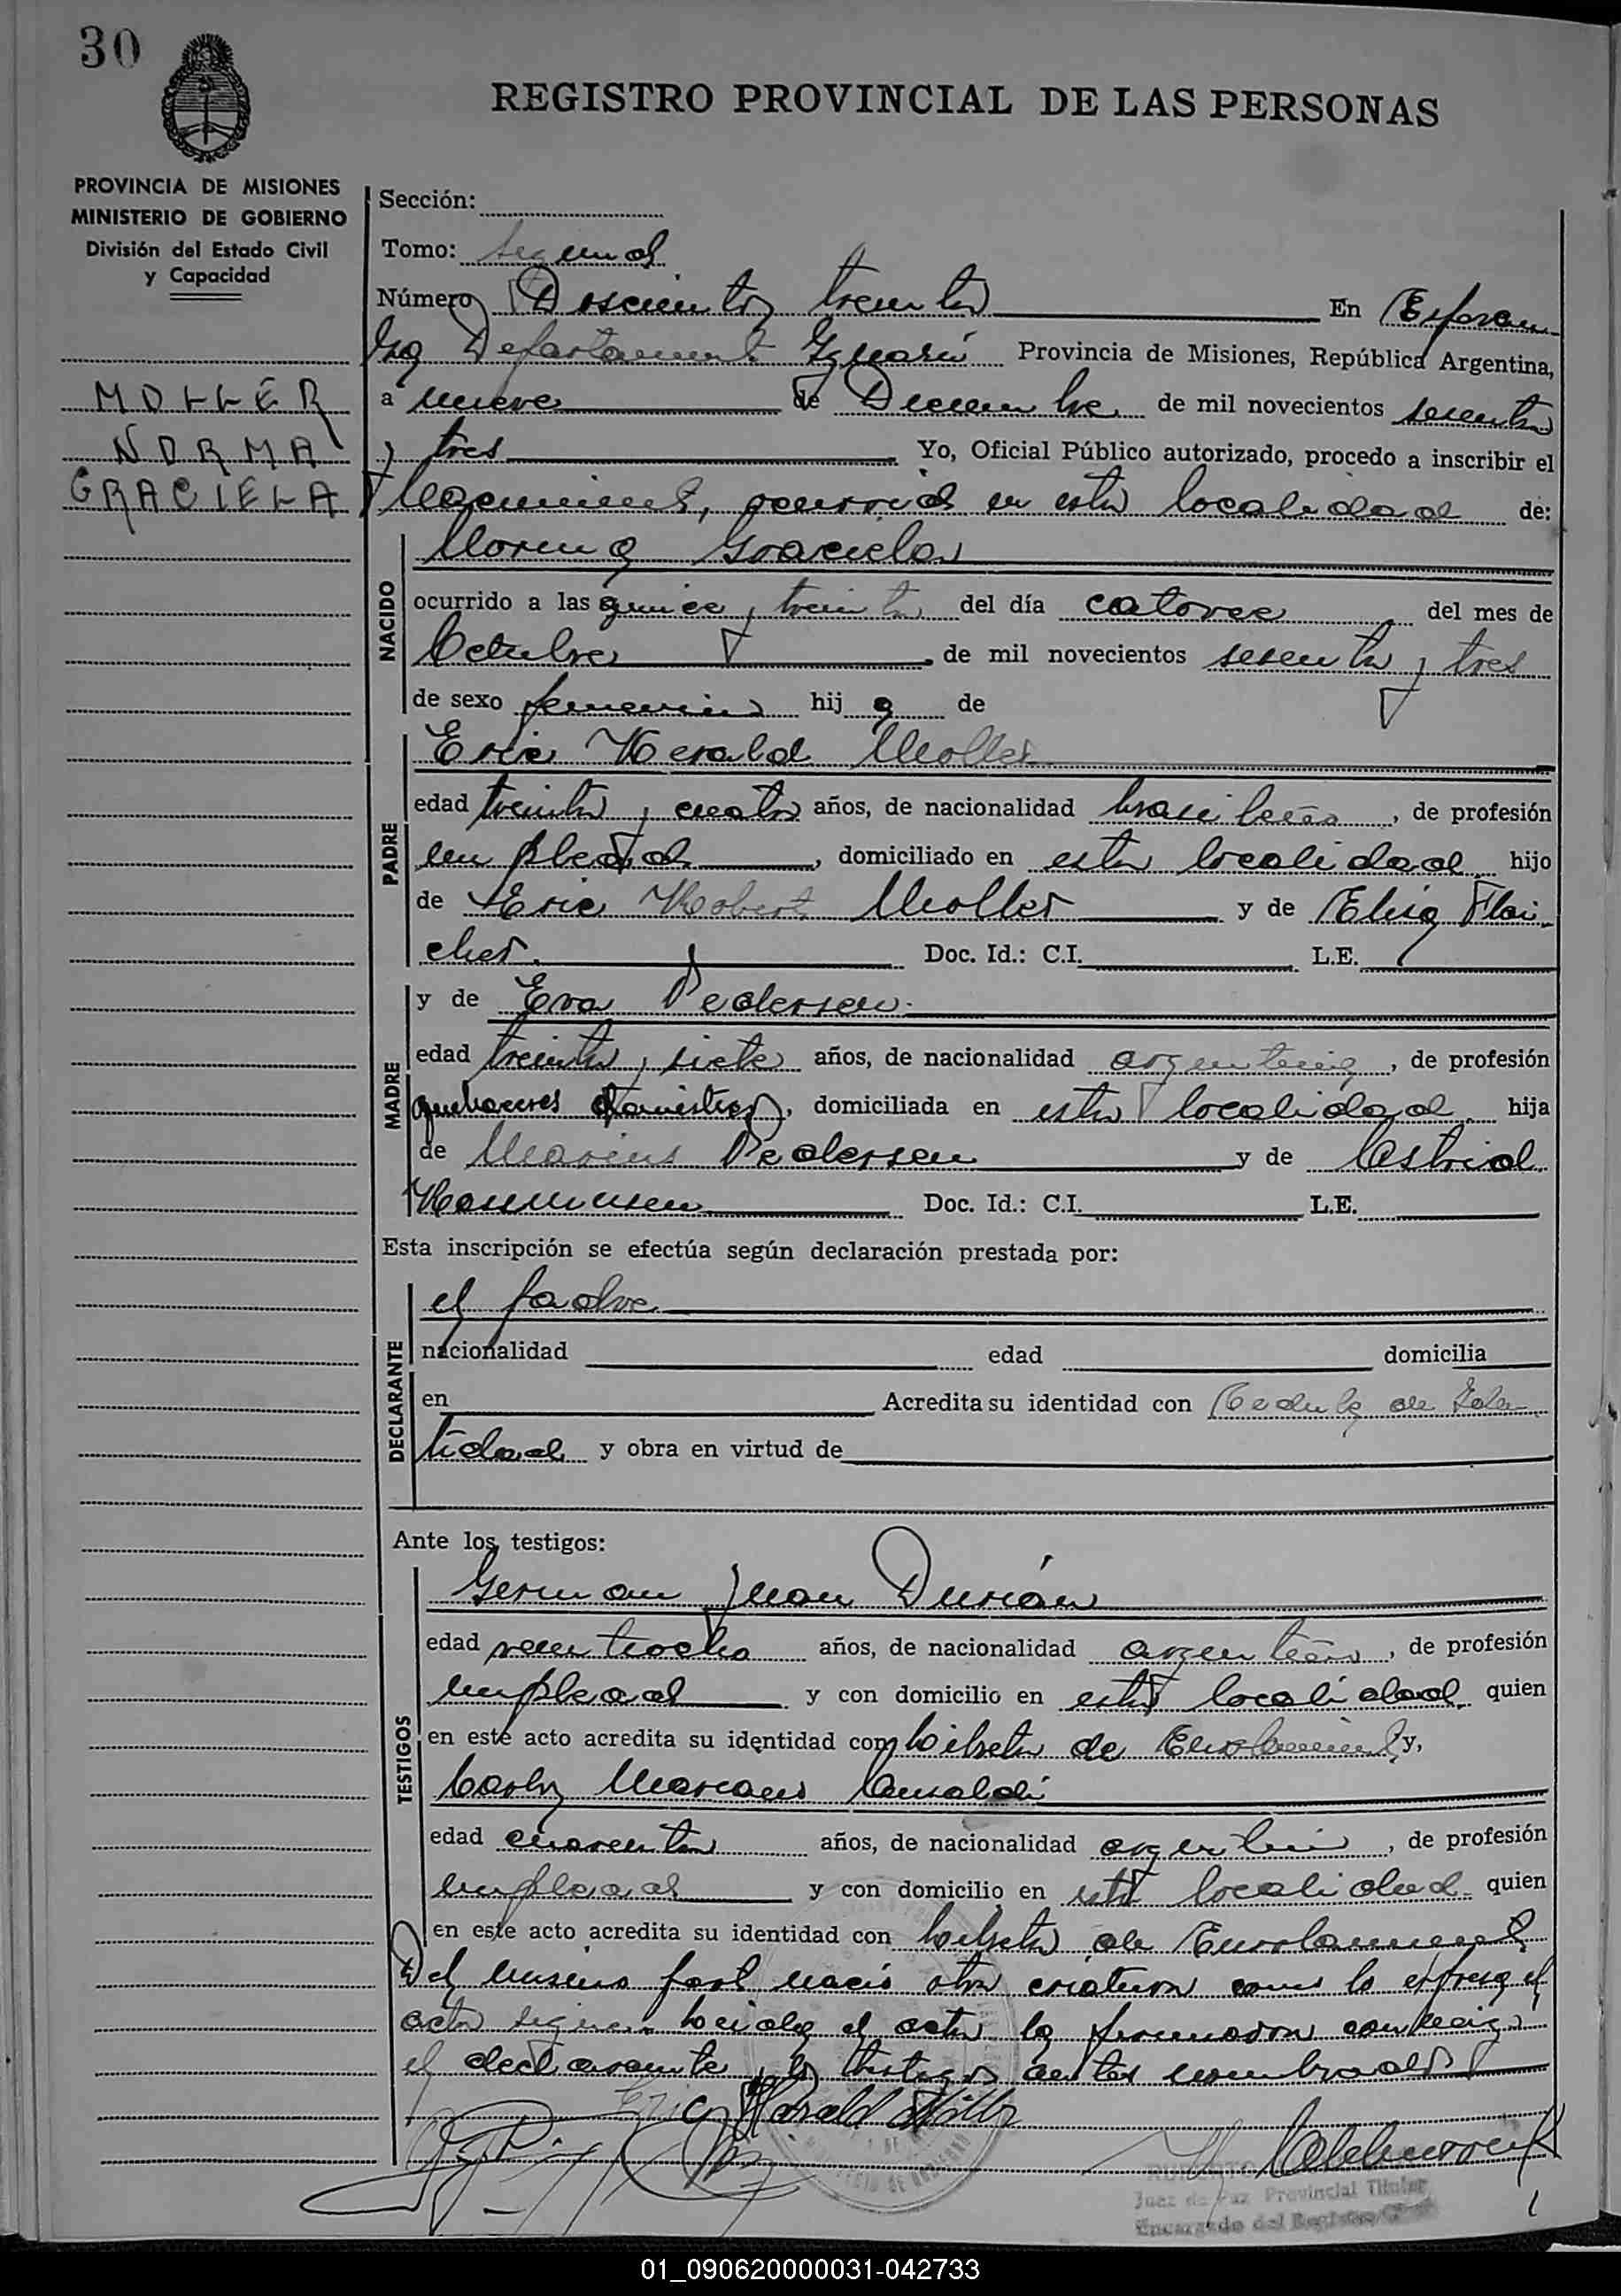 30
REGISTRO PROVINCIAL DE LAS PERSONAS
PROVINCIA DE MISIONES
MINISTERIO DE GOBIERNO
División del Estado Civil
y Capacidad
MOLLER
NORMA
GRACIELA
Sección:
Tomo: Segundo
Número Doscientos treinta En Esperan
za Departamento Iguazú Provincia de Misiones, República Argentina,
a nueve de Diciembre de mil novecientos sesenta
y tres Yo, Oficial Público autorizado, procedo a inscribir el
Nacimiento, ocurrido en esta localidad de:
Norma Graciela
NACIDO
ocurrido a las quince y treinta del día catorce del mes de
Octubre de mil novecientos sesenta y tres
de sexo femenino hij a de
Eric Herald Moller
PADRE
edad treinta y cuatro años, de nacionalidad brasileño, de profesión
empleado, domiciliado en esta localidad hijo
de Eric Robert Moller y de Elisa Flai
cher. Doc. Id.: C.I. L.E.
y de Eva Pedersen
MADRE
edad treinta y siete años, de nacionalidad argentina, de profesión
quehaceres domésticos, domiciliada en esta localidad hija
de Marius Pedersen y de Astrid
Rasmussen Doc. Id.: C.I. L.E.
Esta inscripción se efectúa según declaración prestada por:
el padre
DECLARANTE
nacionalidad edad domicilia
en Acredita su identidad con Cedula de Iden
tidad y obra en virtud de
Ante los testigos:
German Juan Durián
TESTIGOS
edad veintiocho años, de nacionalidad argentino, de profesión
empleado y con domicilio en esta localidad quien
en este acto acredita su identidad con Libreta de Enrolamiento y,
Carlos Mariano Ansaldi
edad cuarenta años, de nacionalidad argentino, de profesión
empleado y con domicilio en esta localidad quien
en este acto acredita su identidad con Libreta de Enrolamiento
Del mismo parto nació otra criatura como lo expresa el
acta siguiente el acta la firmaron conmigo
el declarante y los testigos antes nombrados
Eric Harald Möller
Juez de Paz Provincial Titular
Encargado del Registro
01_090620000031-042733